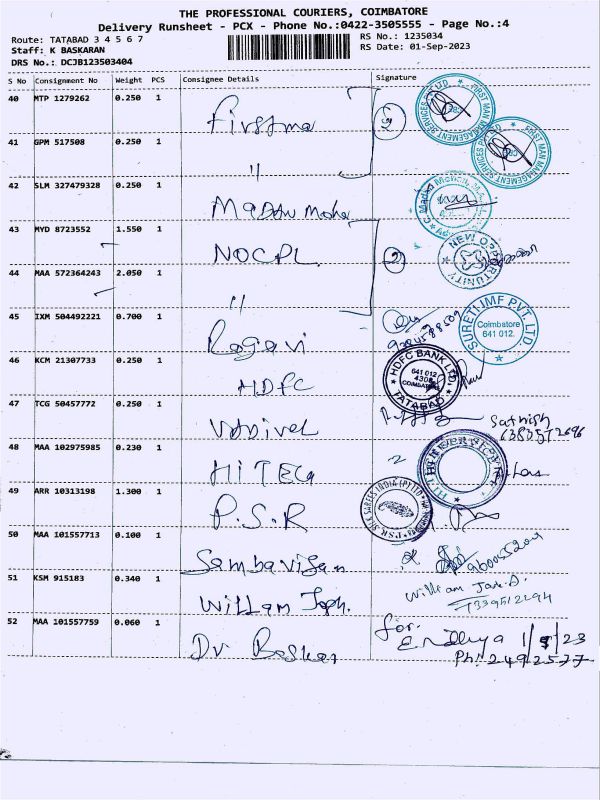 THE PROFESSIONAL COURIERS, COIMBATORE
Delivery Runsheet - PCX - Phone No.:0422-3505555 - Page No.:4
Route: TATABAD 3 4 5 6 7
RS No.: 1235034
Staff: K BASKARAN
RS Date: 01-Sep-2023
DRS No.: DCJB123503404
S No Consignment No Weight PCS Consignee Details Signature
40 MTP 1279262 0.250 1 Firstma
FIRST MAN MANAGEMENT SERVICES PVT LTD
41 GPM 517508 0.250 1 "
FIRST MAN MANAGEMENT SERVICES PVT LTD
42 SLM 327479328 0.250 1 Madhu Moha
43 MYD 8723552 1.550 1 NOCPL
NEW OPPORTUNITY
44 MAA 572364243 2.050 1 "
45 IXM 504492221 0.700 1 Ragavi
SURETI IMF PVT. LTD
Coimbatore
641 012.
46 KCM 21307733 0.250 1 HDFC
HDFC BANK LTD
641 012
4308
COIMBATORE
TATABAD
47 TCG 50457772 0.250 1 Vadivel
Sathish
48 MAA 102975985 0.230 1 HITECH
49 ARR 10313198 1.300 1 P.S.R
PSR SILK SAREES INDIA (P) LTD
50 MAA 101557713 0.100 1
51 KSM 915183 0.340 1 William Joph.
William
52 MAA 101557759 0.060 1 Dr Baskar
for.
1/9/23
Ph: 2492577